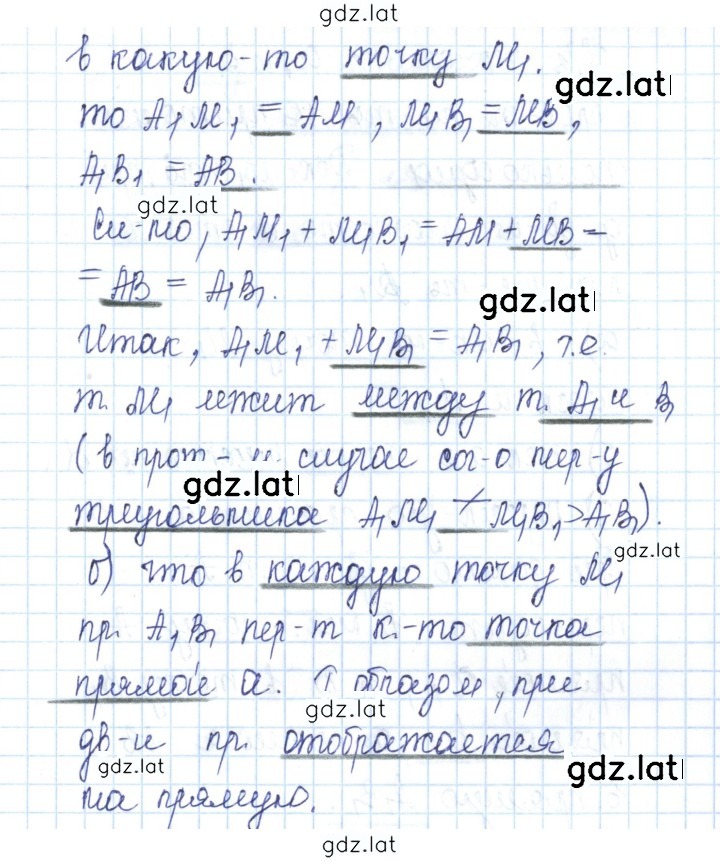 gdz.lat
в какую-то точку M₁.
gdz.lat
то A₁M₁ = AM, M₁B₁ = MB,
A₁B₁ = AB.
gdz.lat
Сл-но, A₁M₁ + M₁B₁ = AM + MB =
= AB = A₁B₁.
gdz.lat
Итак, A₁M₁ + M₁B₁ = A₁B₁, т.е.
т. M₁ лежит между т. A₁ и B₁
(в прот- случае сог-о нер-у
gdz.lat
треугольника A₁M₁ + M₁B₁ > A₁B₁).
gdz.lat
б) что в каждую точку M₁
пр. A₁B₁ пер-т к.-то точка
прямой a. Т образом, при
gdz.lat
дв-и пр. отображается
gdz.lat
gdz.lat
на прямую.
gdz.lat